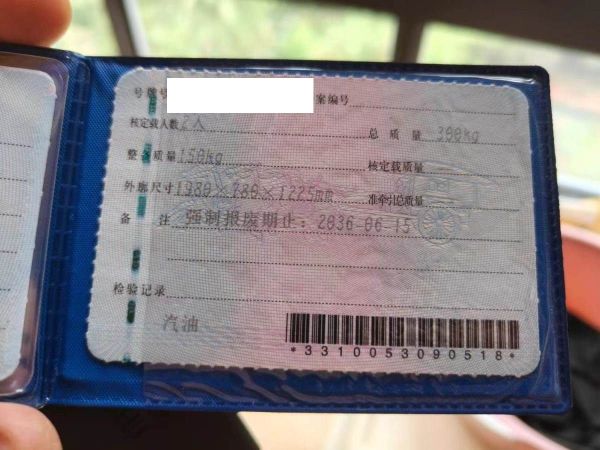 号牌号 案编号
核定载人数 2人 总质量 300kg
整备质量 150kg 核定载质量
外廓尺寸 1980×780×1225mm 准牵引总质量
备注 强制报废期止：2036-06-15
检验记录
汽油
*3310053090518*